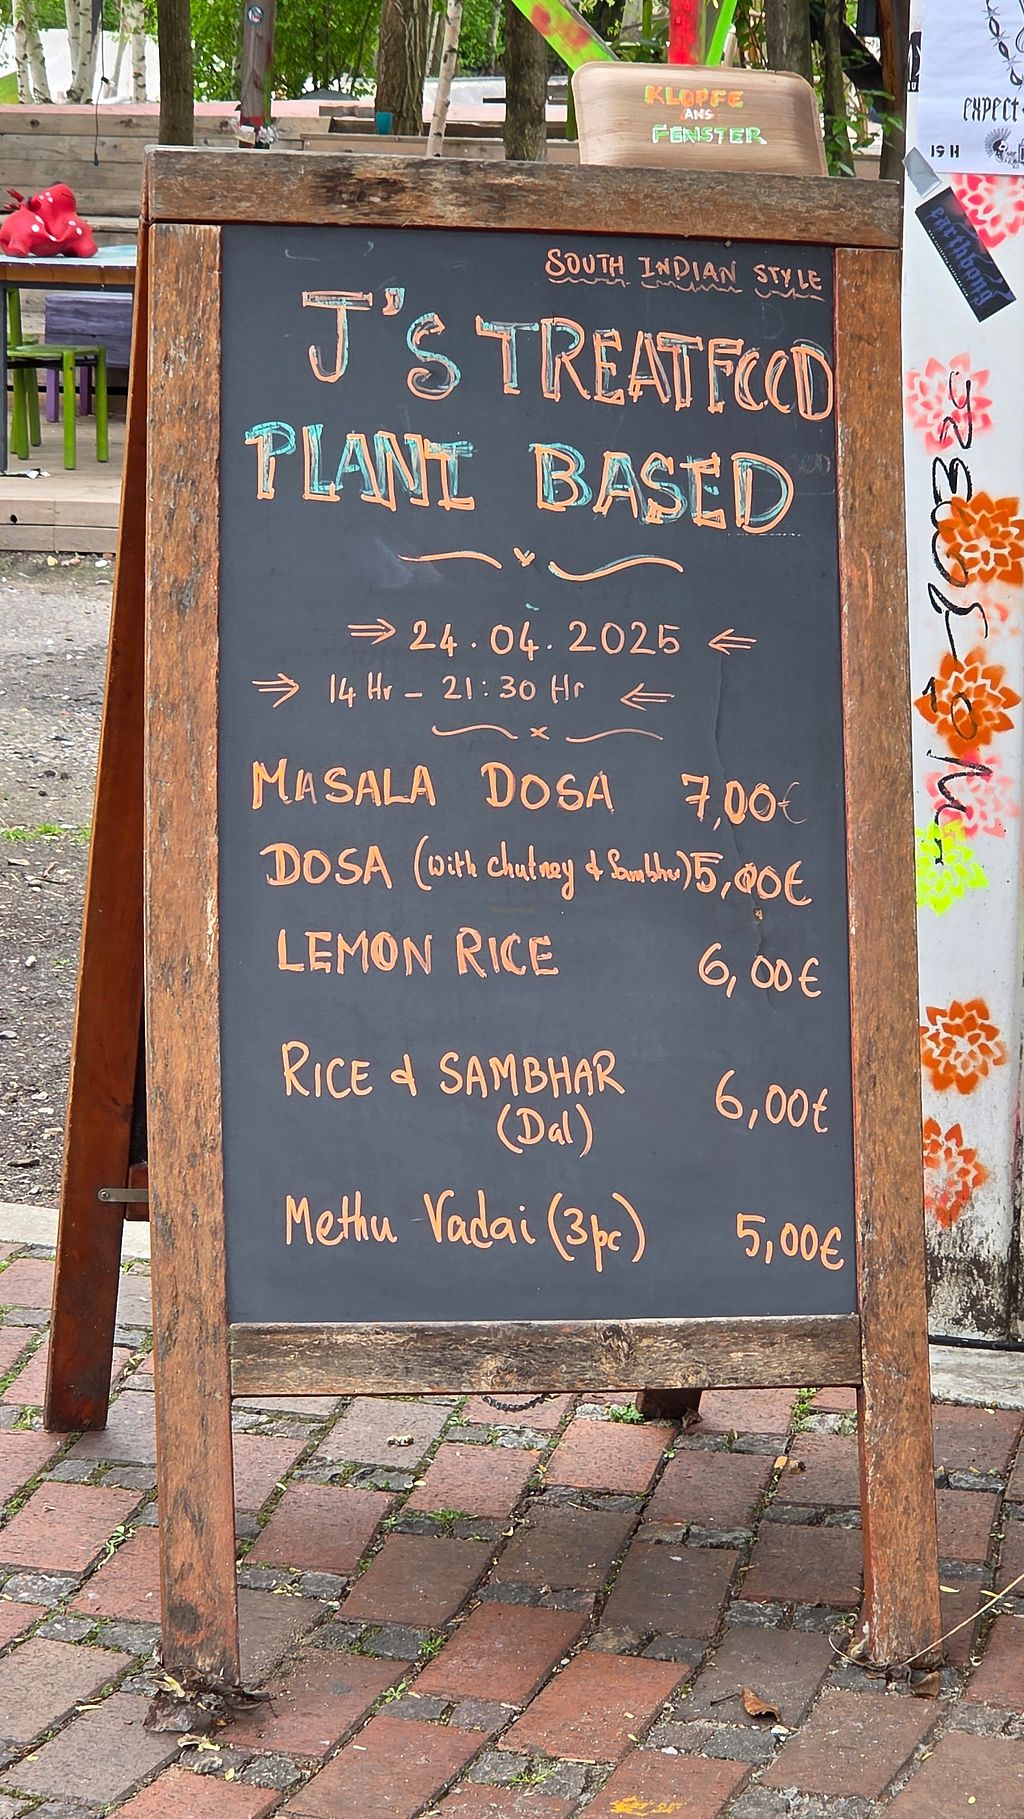 KLOPFE
ANS
FENSTER
EXPECT
19 H
earthbong
SOUTH INDIAN STYLE
J'S TREATFOOD
PLANT BASED
24.04.2025
14 Hr - 21:30 Hr
MASALA DOSA 7,00€
DOSA (with chutney & Sambhar) 5,00€
LEMON RICE 6,00€
RICE & SAMBHAR 6,00€
(Dal)
Methu Vadai (3pc) 5,00€